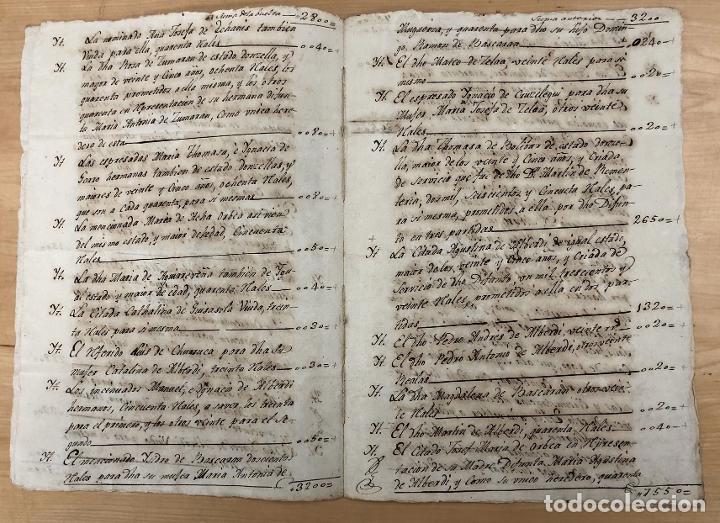 Suma de la buelta 2800=
Yt. La nominada Ana Josefa de Echaniz tambien
Viuda para ella, quarenta Rales 0040=
Yt. La dha Rosa de Zumaran de estado donzella, y
mayor de veinte y Cinco años, ochenta Rales, los
quarenta prometidos a ella misma, y los otros
quarenta en Representacion de su hermana difun-
ta Maria Antonia de Zumaran, Como vnica here-
dera de esta 0080=
Yt. Las espresadas Maria Thomasa, e Ignacia de
hermanas tambien de estado donzellas, y
maiores de veinte y Cinco años, ochenta Rales,
que son a cada quarenta, para si mesmas 0080=
Yt. La mencionada Maria de asi vien
del mismo estado, y maior de edad, Cincuenta
Rales 0050=
Yt. La dha Maria de tambien de
estado y maior de edad, quarenta Rales 0040=
Yt. La Citada Cathalina de Viuda, trein-
ta Rales para si mesma 0030=
Yt. El referido Luis de Churruca para dha su
muger Catalina de Alberdi, treinta Rales 0030=
Yt. Los Manuel, e Ignacio de Alberdi
hermanos, Cincuenta Rales, a saver los treinta
para el primero, y los otros veinte para el Se-
gundo 0050=
Yt. El mencionado Pedro de Bascaran doscientos
Rales para dha su muger Maria Antonia de
3200=
Suma anterior 3200
y quarenta para dha su hijo Domin-
go Ramon de Bascaran 0240=
Yt. El dho Mateo de Zelaa, veinte Rales para si
mesmo 0020=
Yt. El espresado Ignacio de para dha su
Muger Maria Josefa de Zelaa, otros veinte
Rales 0020=
Yt. La dha Thomasa de Bolibar de estado donze-
lla, maior de los veinte y Cinco años, y Criada
de Servicia que fue de dho Dn Martin de Remen-
teria, dosmil, Seiscientos y Cincuenta Rales, pa-
ra si mesma, prometidos a ella por dho Difun-
to en tres partidas 2650=
Yt. La Citada Agustina de Alberdi de igual estado,
maior de los veinte y Cinco años, y Criada de
Servicia de dho Difunto, un mil trescientos y
veinte Rales, prometidos a ella en dos par-
tidas 1320=
Yt. El dho Pedro Andres de Alberdi, veinte r 0020=
Yt. El dho Pedro Antonio de Alberdi, otros veinte
Reales 0020=
Yt. La dha Magdalena de Bascaran otros vein-
te Rales 0020=
Yt. El dho Martin de Alberdi, quarenta Rales 0040=
Yt. El Citado Josef Maria de en Represen-
tacion de su Madre Difunta Maria Agustina
de Alberdi, y Como su unico heredero, quarenta
7550=
todocoleccion.net